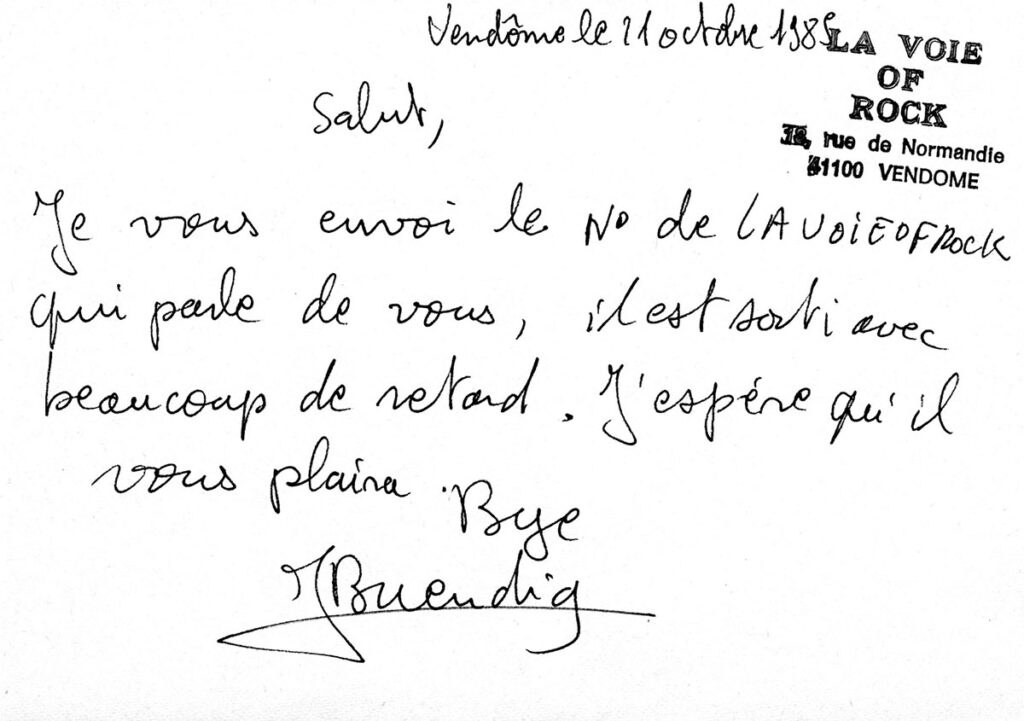 Vendôme le 21 octobre 1985
LA VOIE
OF
ROCK
rue de Normandie
41100 VENDOME
Salut,
Je vous envoi le N° de LA VOIE OF ROCK
qui parle de vous, il est sorti avec
beaucoup de retard. J'espére qu'il
vous plaira.
Bye
JBuendig